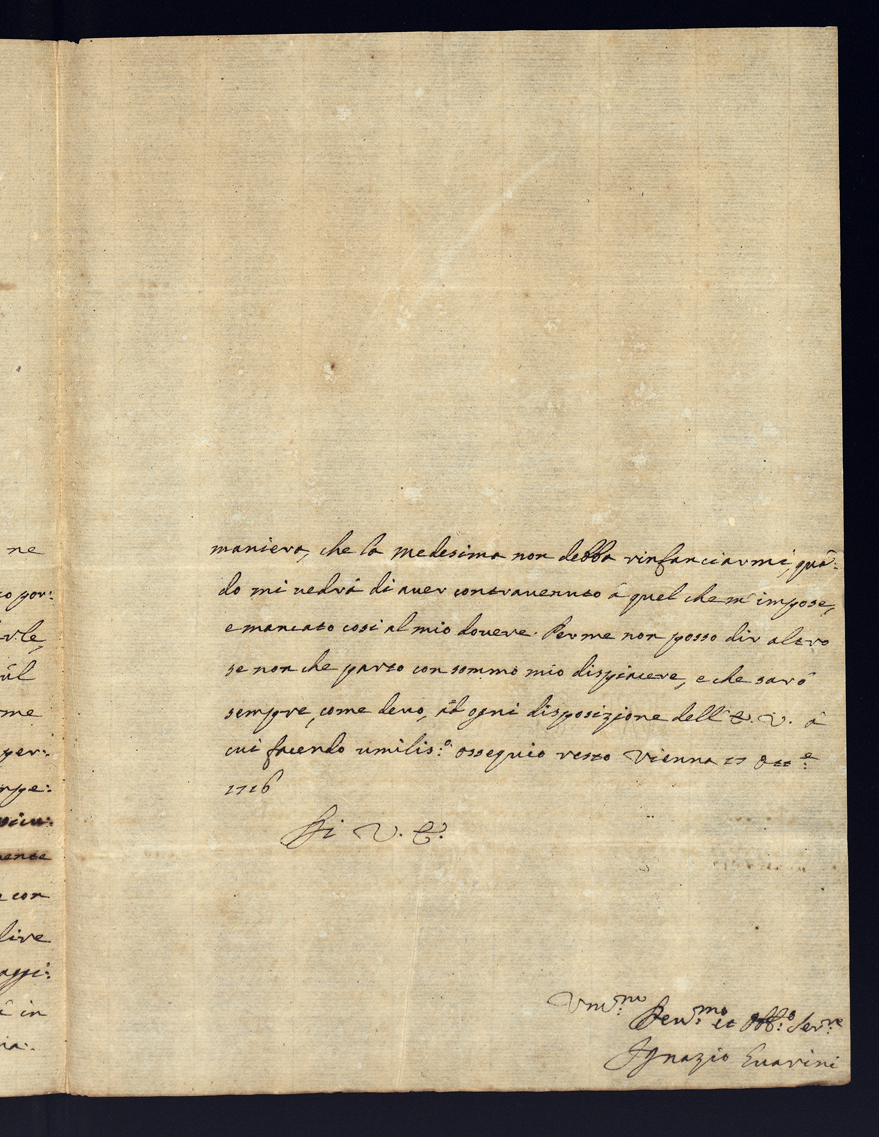 ne
por:
irle,
ul
me
per:
mpe:
mente
con
live
aggi:
in
maniera, che la medesima non debba rinfanciarmi, quã:
do mi uedrà di auer contrauenuto à quel che m'impose,
e mancato così al mio douere. Per me non posso dir altro
se non che parto con sommo mio dispiacere, e che sarò
sempre, come deuo, ad ogni disposizione dell' E. V. à
cui facendo umilis:º ossequio resto Vienna 17 Ott:e
1716
Di V. E.
Um:mo
Deu:mo et Obb:o Ser:re
Ignazio Guarini